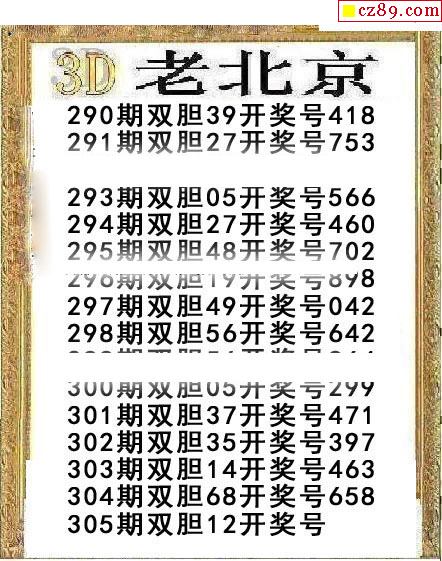 cz89.com
3D 老北京
290期双胆39开奖号418
291期双胆27开奖号753
293期双胆05开奖号566
294期双胆27开奖号460
295期双胆48开奖号702
296期双胆19开奖号898
297期双胆49开奖号042
298期双胆56开奖号642
300期双胆05开奖号299
301期双胆37开奖号471
302期双胆35开奖号397
303期双胆14开奖号463
304期双胆68开奖号658
305期双胆12开奖号